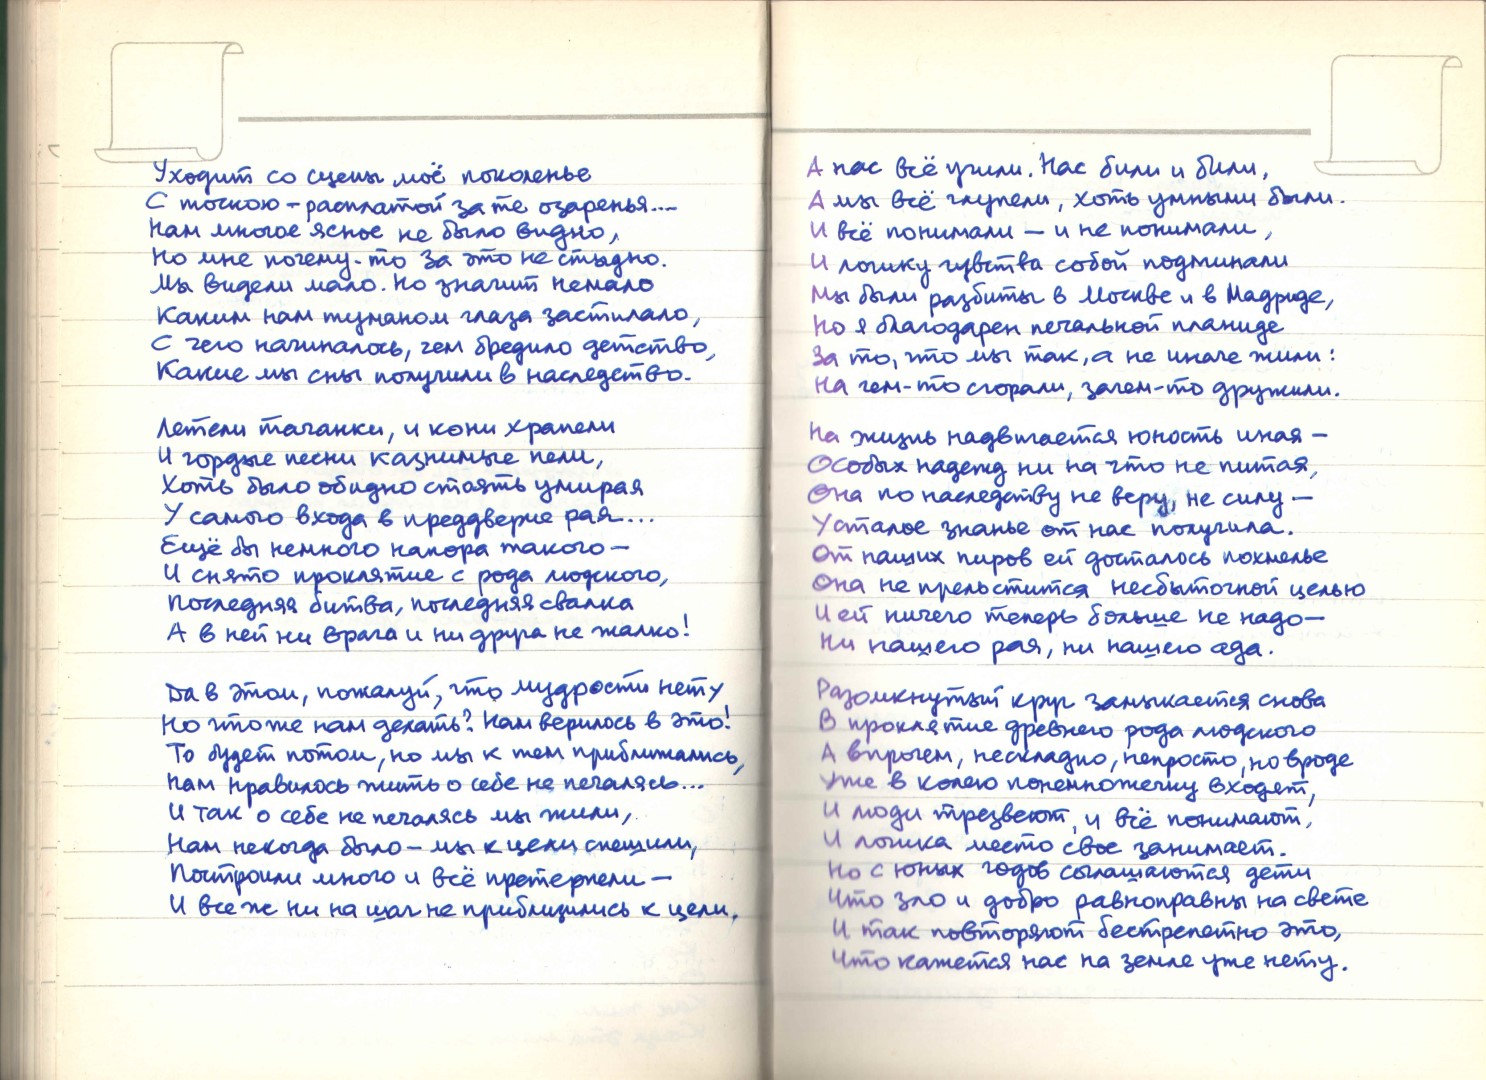 Уходит со сцены моё поколенье
С тоскою – расплатой за те озаренья....
Нам многое ясное не было видно,
Но мне почему-то за это не стыдно.
Мы видели мало. Но значит немало
Каким нам туманом глаза застилало,
С чего начиналось, чем бредило детство,
Какие мы сны получили в наследство.
Летели тачанки, и кони храпели
И гордые песни казнимые пели,
Хоть было обидно стоять умирая
У самого входа в преддверие рая....
Ещё бы немного напора такого –
И снято проклятие с рода людского,
Последняя битва, последняя свалка
А в ней ни врага и ни друга не жалко!
Да в этом, пожалуй, что мудрости нету
Но что же нам делать? Нам верилось в это!
То будет потом, но мы к тем приближались,
Нам нравилось жить о себе не печалясь...
И так о себе не печалясь мы жили,
Нам некогда было – мы к цели спешили,
Построили много и всё претерпели –
И все ж ни на шаг не приблизились к цели.
А нас всё учили. Нас били и били,
А мы всё глупели, хоть умными были.
И всё понимали – и не понимали,
И логику чувства собой подминали
Мы были разбиты в Москве и в Мадриде,
Но я благодарен печальной планиде
За то, что мы так, а не иначе жили:
На чем-то сгорали, зачем-то дружили.
На жизнь надвигается юность иная –
Особых надежд ни на что не питая,
Она по наследству не веру, не силу –
Усталое знанье от нас получила.
От наших пиров ей досталось похмелье
Она не прельстится несбыточной целью
И ей ничего теперь больше не надо –
Ни нашего рая, ни нашего ада.
Разомкнутый круг замыкается снова
В проклятие древнего рода людского
А впрочем, нескладно, непросто, но вроде
Уже в колею понемножечку входят,
И люди трезвеют, и всё понимают,
И логика место свое занимает.
Но с юных годов соглашаются дети
Что зло и добро равноправны на свете
И так повторяют бестрепетно это,
Что кажется нас на земле уже нету.